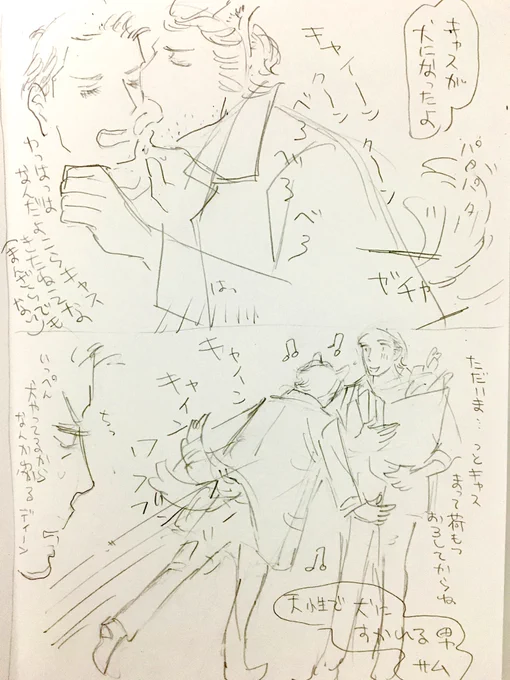 キャスが
犬になったよ
キャイーン
クーン
クーン
べろ
べろ
べろ
パタパタ
ゼチャ
はっ
わっはっは
なんだよこらキャス
きたねってな
(まんざらでも
ない)
ただいま…っとキャス
まって荷もつ
おろしてからね
キャイーン
キャイン
ブンブン
ちっ
いっぺん
犬やってるから
ディーン
天性で犬に
すかれる男
サム